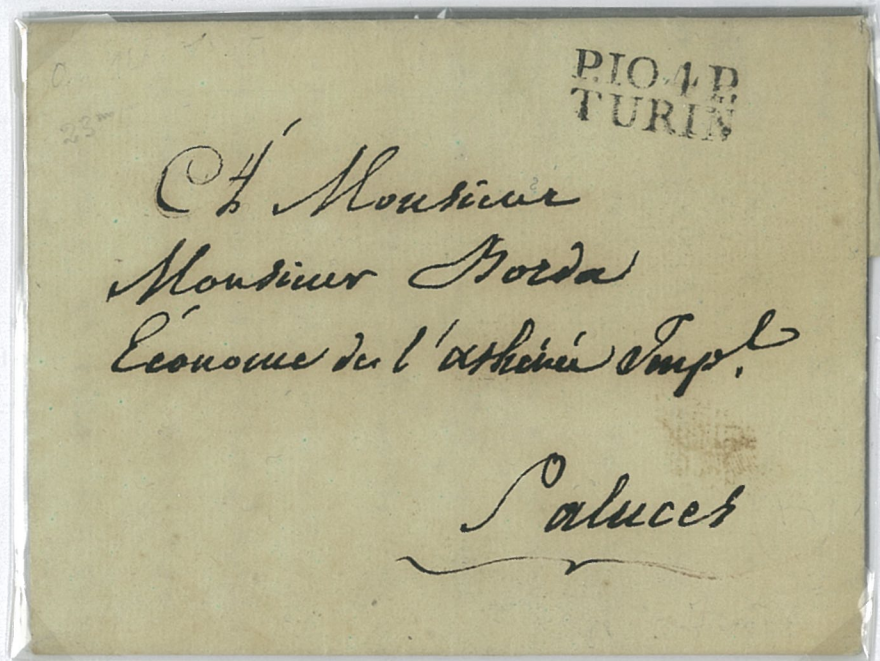 P.104.P.
TURIN
23m
A Monsieur
Monsieur Borda
Économe de l'athénée Imp.l
Saluces